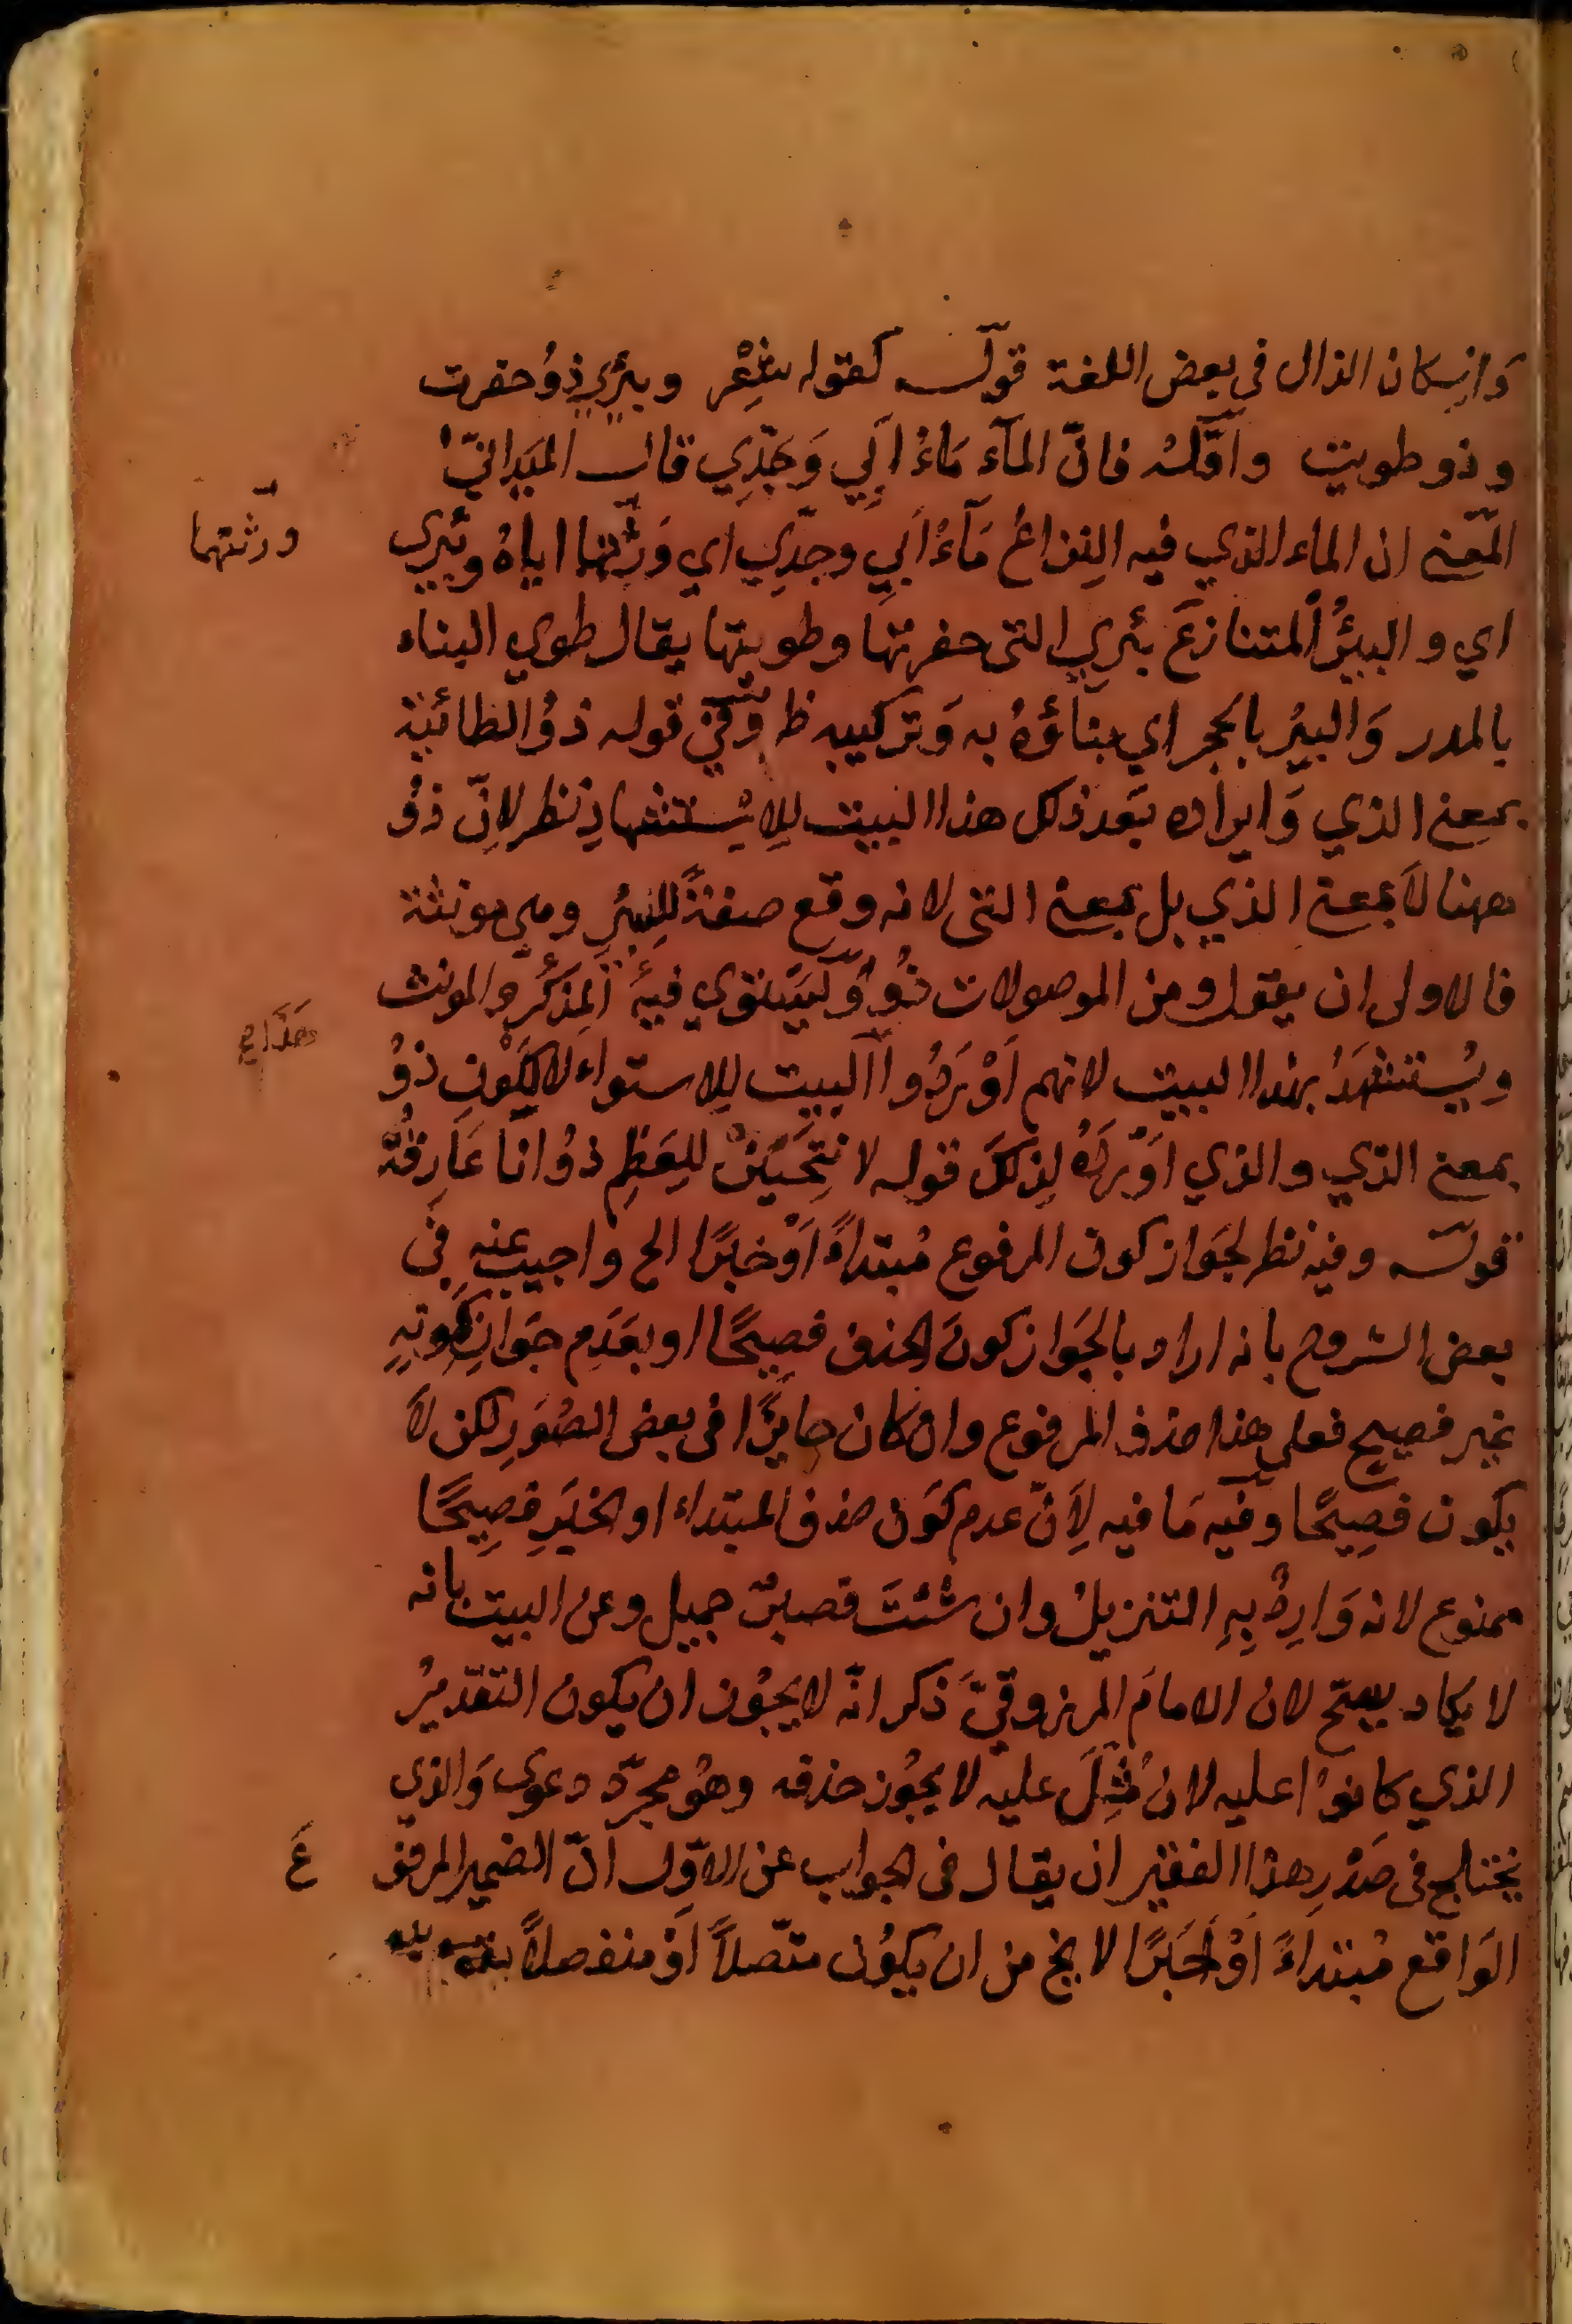 وَاِسكان الذال فى بعض اللغة قولـه كقوله شِعْر وبئرِي ذوُ حفرت
وذو طويت واَوّلُه فانّ المآء مَاءُ اَبِي وَجَدّي قال الميَدانيّ
المَعنى ان الماء الذي فيه النِزاعُ مَآءُ اَبِي وجدّي اي وَرّثنها اياهُ وبئري
ورّثتهما
اي والبيئرُ المتنازعَ بئري التى حفرتها وطويتها يقال طوي البناء
بالمدر وَالبيرُ بالحجر اي بنآؤهُ به وَتركيبه ظ وَفي قوله ذوُ الطائية
بمعنى الذي وَايراده بَعد ذلك هذا البيت لِلاِسْتشهادِ نظر لانّ ذوُ
ههنا لاَ بمعنى الذي بل بمعنى التى لانه وقع صفةً للبئرِ وهى مونثة
فالاولى ان يقول ومن الموصولات ذُو وَيَستوي فيهِ المذكّرُ والمونث
هَذَا ح
ويُستشهَدُ بهذا البيت لانهم اَوْرَدُوا البيت لِلاستواء لا لِكَوْنِ ذوُ
بمعنى الذي والذي اَوْرَدَهُ لِذلكَ قوله لانتحيَنْ لِلعَظمِ ذوُ انَا عَارِقُهْ
قولـه وفيه نظر لجَواز كون المرفوع مُبتداءً اَوْ خبرًا الح واجيب عنه فى
بعض الشروح بانه اراد بالجَواز كونَ الحذف فصيحًا او بعَدَم جَوازِ كونِهِ
غير فصيح فعلى هذا حذف المرفوع وان كان جايزًا فى بعض الصُوَرِ لكن لاَ
يكون فصِيحًا وفيه مَا فيه لِاَنّ عدم كوَن حذف المبتداء او الخبَرِ فصِيحًا
ممنوع لانه وَارِدٌ بِهِ التنزيل وان شئتَ فصبرٌ جميل وعن البيت بانه
لا يكاد يصحّ لان الامامَ المرزوقيَّ ذكر انّه لا يجوُز ان يكون التقديرُ
الذي كانوُا عليه لانّ مِثلَ عليه لا يجوُز حذفه وهوُ مجرّد دعوى وَالذي
يختلج فى صَدرِ هذا الفقير ان يقال فى الجواب عن الاوّل اَنّ الضمير المرفو
عَ
الوَاقع مُبتداءً اَوْ خَبَرًا لا يخ من ان يكوُن متّصلاً اَوْ منفصلاً